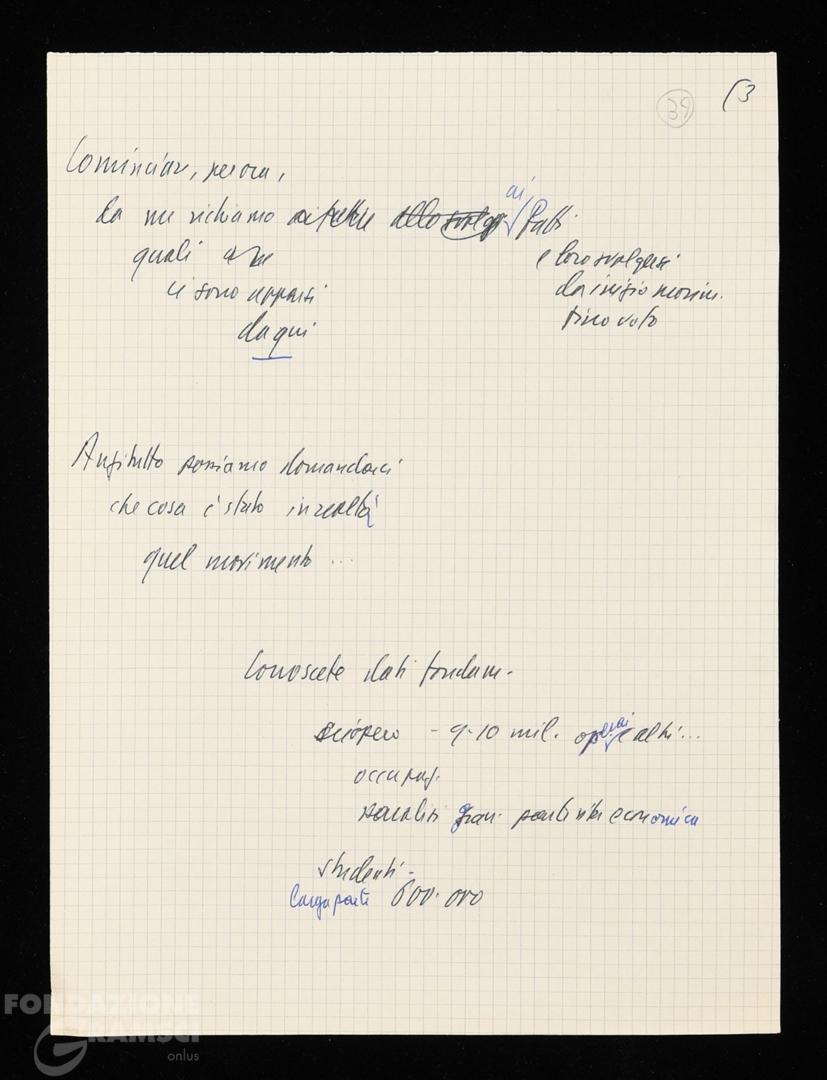 39 (3
Cominciar, per ora,
da un richiamo ai fatti
quali
ci sono apparsi
da qui
e loro svolgersi
da inizio movim.
fino voto
Anzitutto possiamo domandarci
che cosa è stato in realtà
quel movimento ...
Conoscete dati fondam.
sciopero - 9-10 mil. operai e altri ...
occupaz.
paralisi gran parte vita economica
studenti -
larga parte 600.000
FONDAZIONE
GRAMSCI
onlus